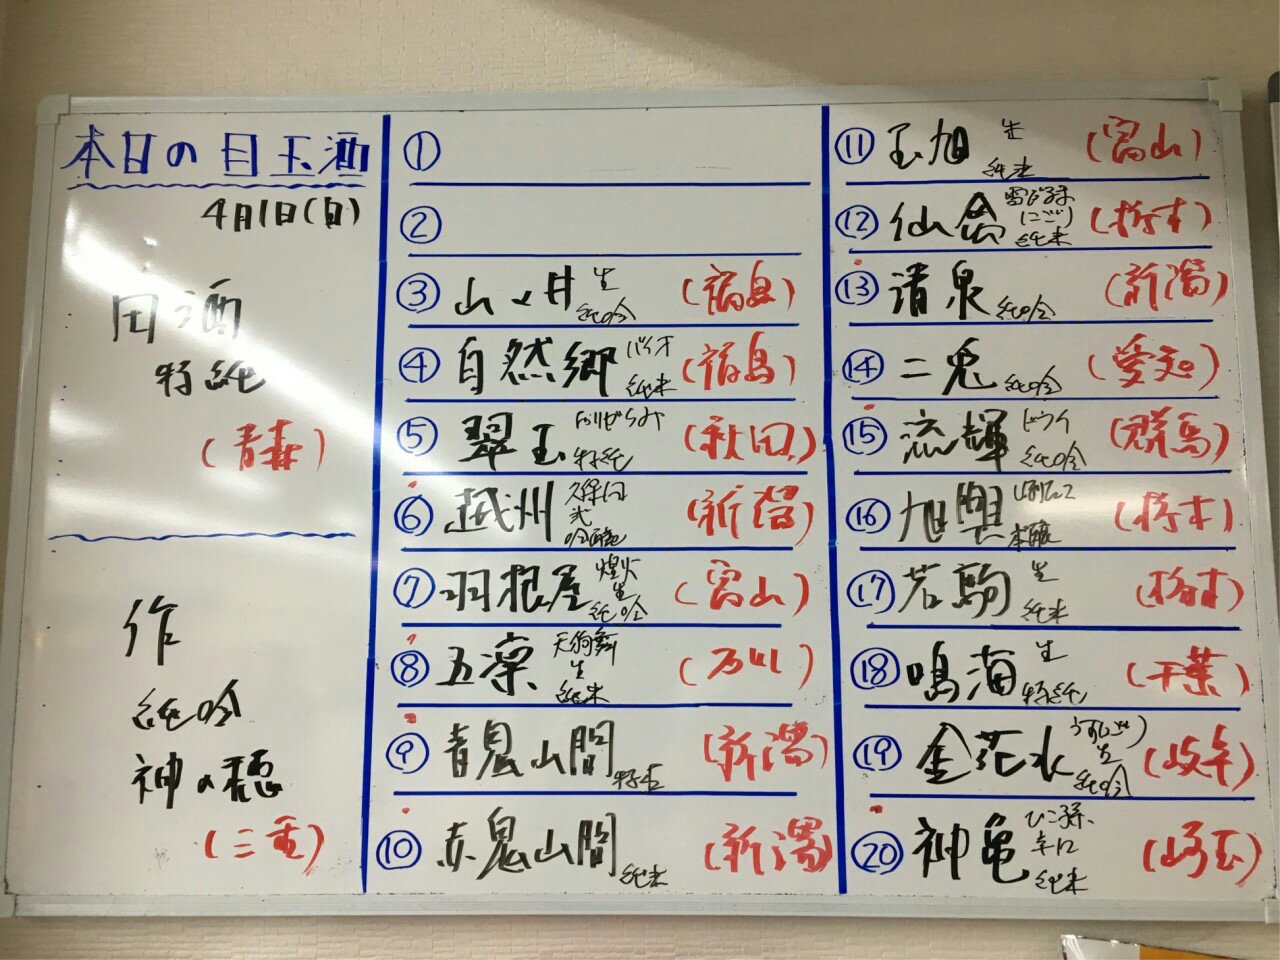 本日の目玉酒
4月1日(日)
田酒
特純
(青森)
作
純吟
神の穂
(三重)
①
②
③ 山の井 生 純吟 (福島)
④ 自然郷 バイオ 純米 (福島)
⑤ 翠玉 はりぜらみ 特純 (秋田)
⑥ 越州 久保田 弐 吟醸 (新潟)
⑦ 羽根屋 煌火 生 純吟 (富山)
⑧ 五凛 天狗舞 生 純米 (石川)
⑨ 青鬼山間 特本 (新潟)
⑩ 赤鬼山間 純米 (新潟)
⑪ 玉旭 生 純米 (富山)
⑫ 仙禽 雪だるま にごり 純米 (栃木)
⑬ 清泉 純吟 (新潟)
⑭ 二兎 純吟 (愛知)
⑮ 流輝 純吟 (群馬)
⑯ 旭興 本醸 (栃木)
⑰ 若駒 生 純米 (栃木)
⑱ 鳴海 生 特純 (千葉)
⑲ 金花水 うすにごり 生 純吟 (岐阜)
⑳ 神亀 ひこ孫 辛口 純米 (埼玉)